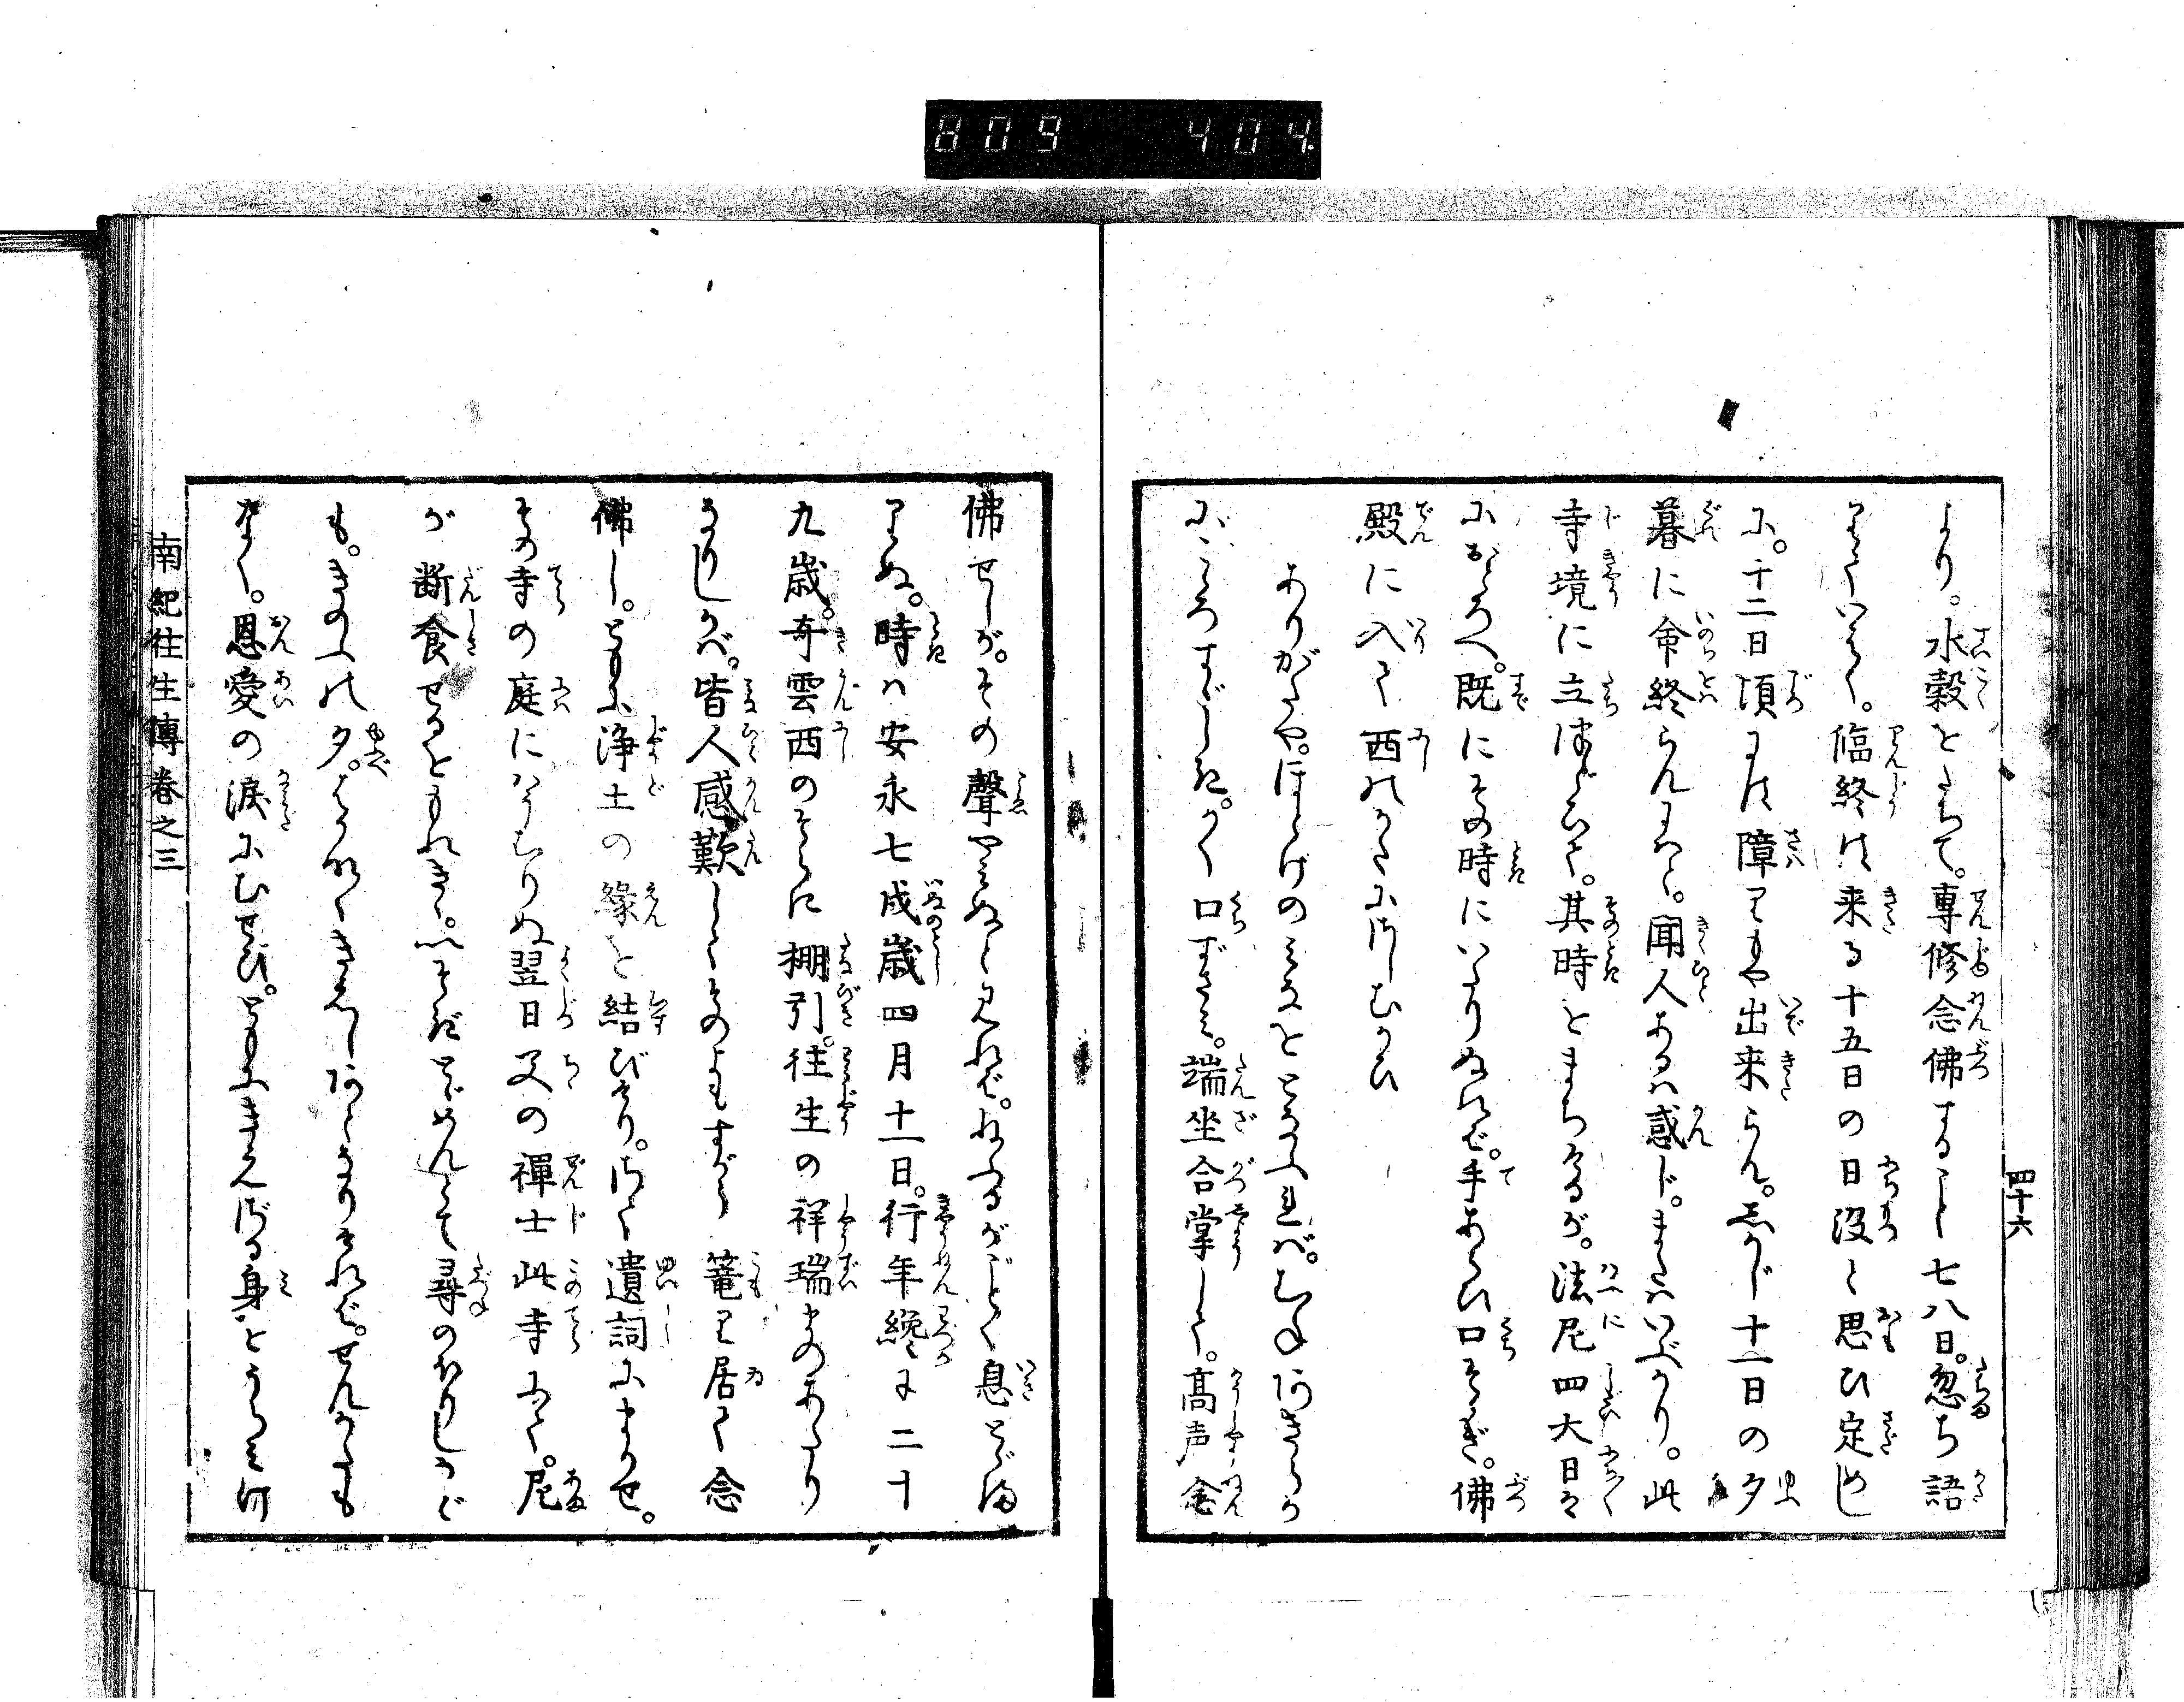 809 404.
四十六
より。水穀をたちて。專修念佛すること七八日。忽ち語
りていはく。臨終は来る十五日の日没と思ひ定めし
に。十二日頃には障りもや出来らん。しかじ十一日の夕
暮に命終らんには と。聞人あるは感じ。またはいぶかり。此
寺境に立つどひて。其時をまちけるが。法尼四大日々
におとろへ。既にその時にいたりぬれば。手あらひ口そゝぎ。佛
殿に入て西のかたにうちむかひ
ありがたや。ほとけのみなをとなふれば。むねあきらか
に。こゝろすゞしき。かく口ずさみ。端坐合掌して。高声念
佛せしが。その聲やみぬと見れば。ねふるがごとく息とゞま
りぬ。時は安永七戌歳四月十一日。行年纔に二十
九歳。奇雲西のそらに棚引。往生の祥瑞まのあたり
なりしかば。皆人感歎して その よもすがら篭り居て念
佛し。ともに浄土の緣を結びけり。かくて遺詞にまかせ。
その寺の庭にはうむりぬ翌日父の禅士此寺にて。尼
が断食せるをもれきゝ。いそぎとゞめんとて尋のぼりしかど
も。きのふの夕。はかなくきえしあとなりければ。せんかたも
なく。恩愛の涙にむせび。ともにきえざる身をうらみ何
南紀往生傳卷之三